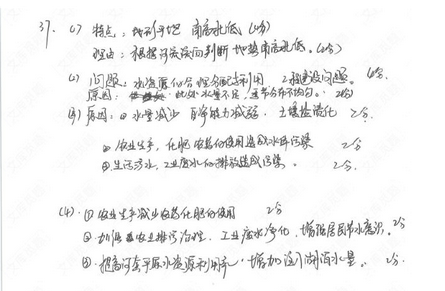 37. (1) 特点：地形平坦 南高北低 (4分)
理由：根据河流流向判断 地势南高北低。(4分)
(2) 问题：水资源的合理分配与利用 2. 建设问题。
原因：水量不足，季节分布不均匀。
(3) 原因：① 水量减少 自净能力减弱 土壤盐渍化 2分
② 农业生产，化肥 农药的使用造成水体污染
③ 生活污水，工业废水的排放造成污染。 2分。
(4) ① 农业生产减少农药化肥的使用 2分
② 加强农业排污治理、工业废水净化，增强居民节水意识。2分
③ 提高河套平原水资源利用率，增加湖泊水量。2分.